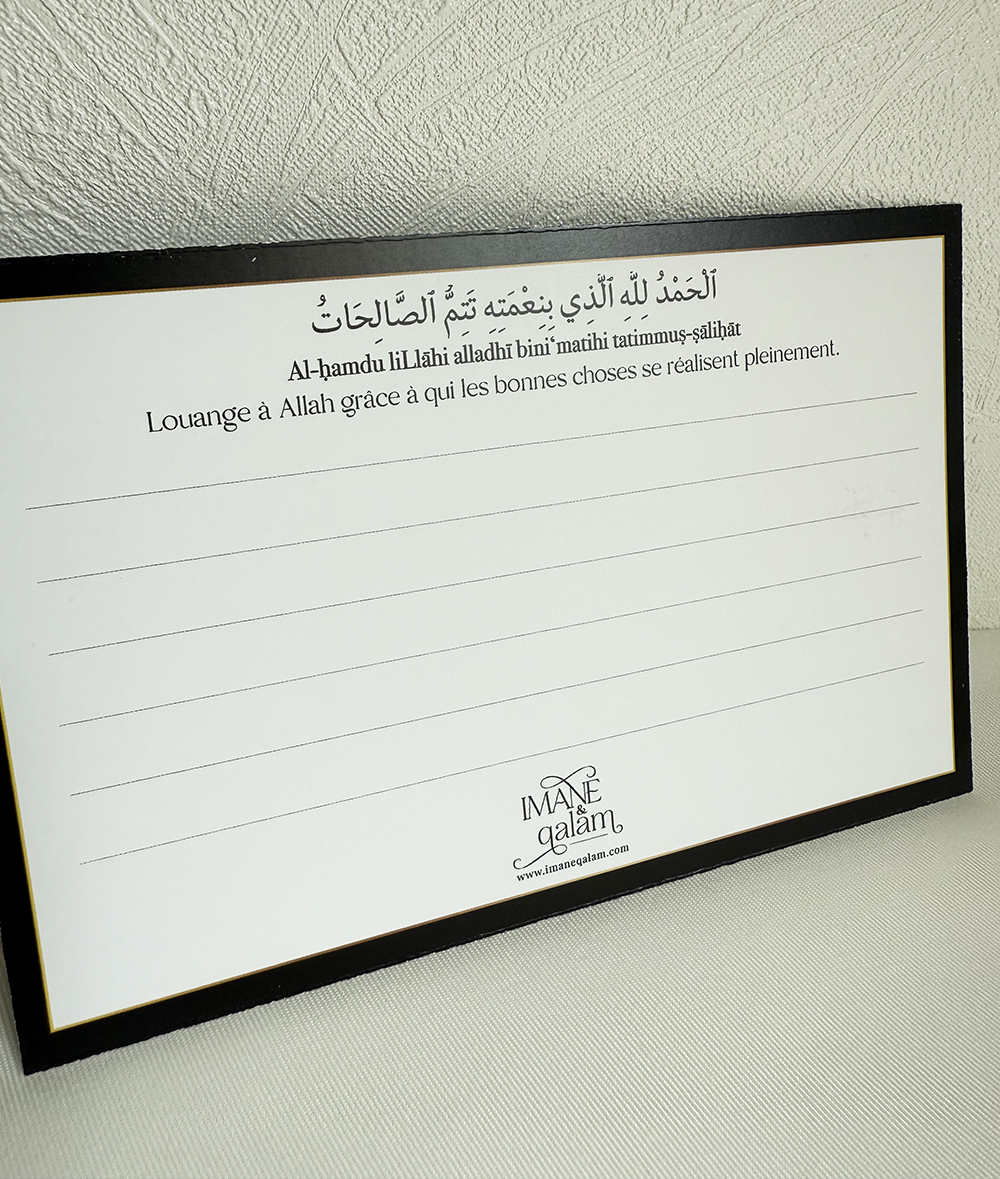 ٱلْحَمْدُ لِلَّهِ ٱلَّذِي بِنِعْمَتِهِ تَتِمُّ ٱلصَّالِحَاتُ
Al-ḥamdu liLlāhi alladhī bini‘matihi tatimmuṣ-ṣāliḥāt
Louange à Allah grâce à qui les bonnes choses se réalisent pleinement.
IMANE
&
qalam
www.imaneqalam.com